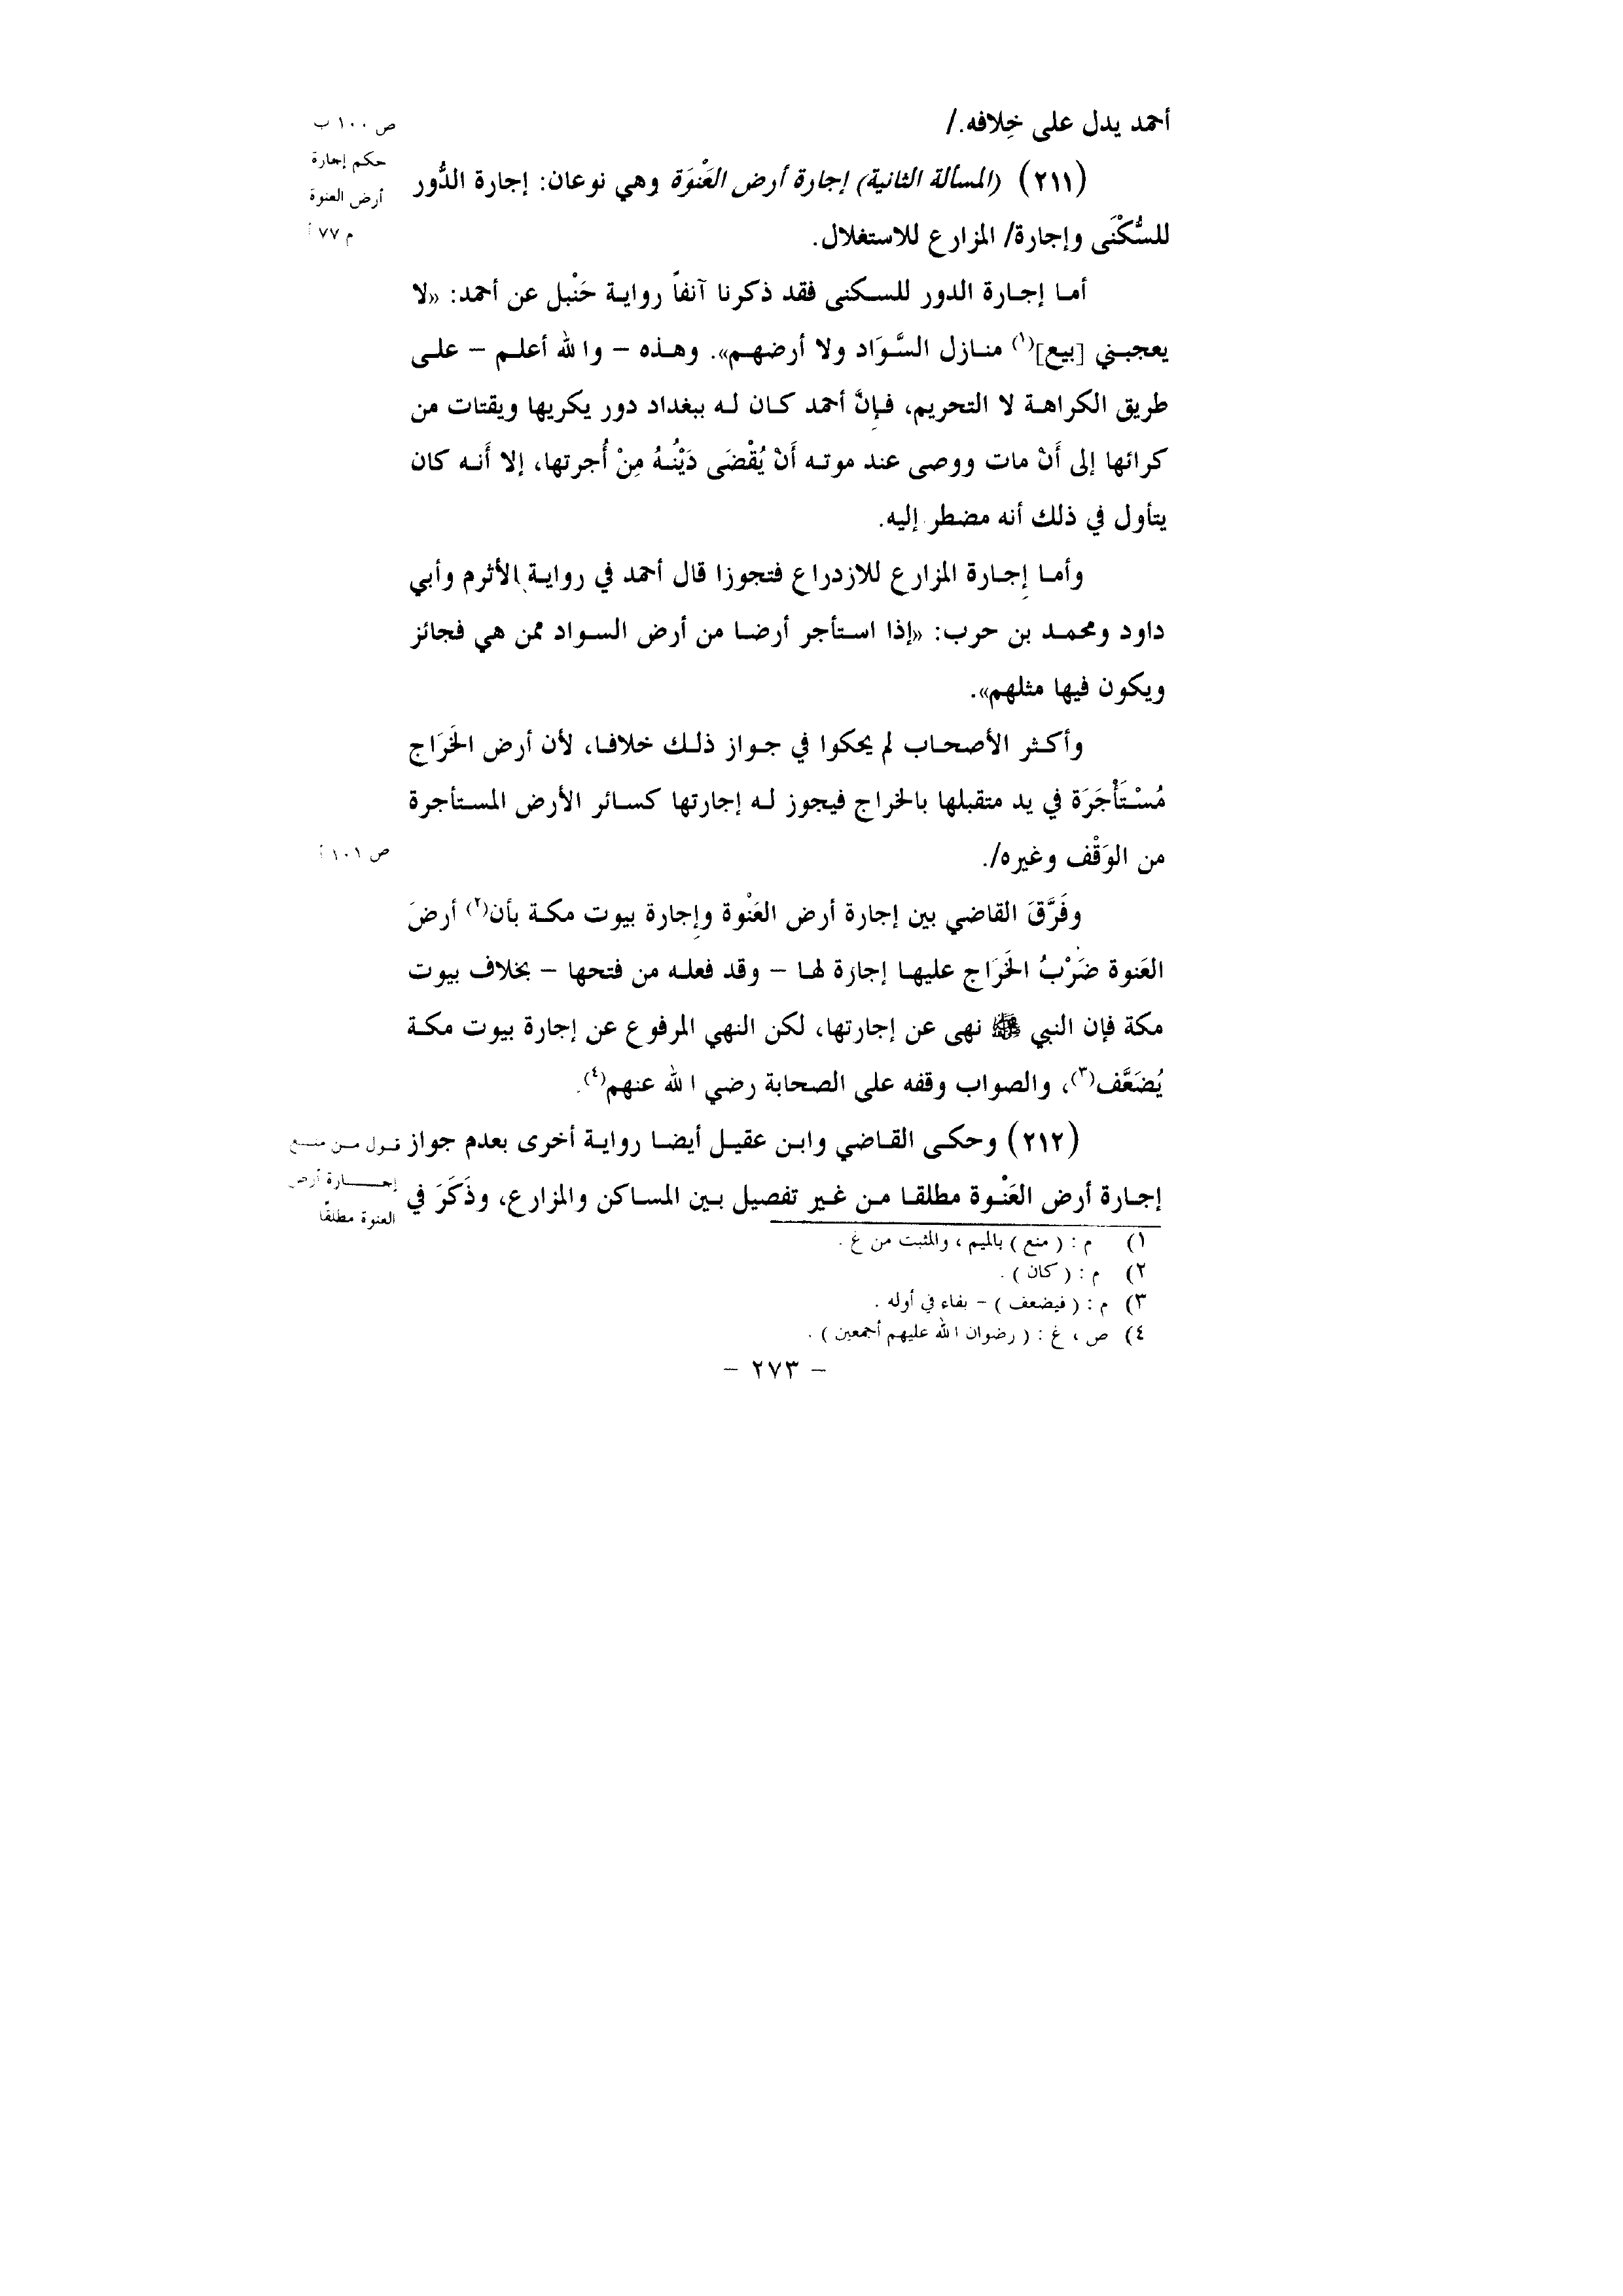 أحمد يدل على خِلافه./
ص ١٠٠ ب
(٢١١) (المسألة الثانية) إجارة أرض العَنْوَة وهي نوعان: إجارة الدُّور
حكم إجارة
أرض العنوة
للسُّكْنَى وإجارة/ المزارع للاستغلال.
م ٧٧ أ
أما إجارة الدور للسكنى فقد ذكرنا آنفاً رواية حَنْبل عن أحمد: «لا
يعجبني [بيع](١) منازل السَّوَاد ولا أرضهم». وهذه – والله أعلم – على
طريق الكراهة لا التحريم، فإنَّ أحمد كان له ببغداد دور يكريها ويقتات من
كرائها إلى أَنْ مات ووصى عند موته أَنْ يُقْضَى دَيْنُهُ مِنْ أُجرتها، إلا أَنه كان
يتأول في ذلك أنه مضطر إليه.
وأما إجارة المزارع للازدراع فتجوزا قال أحمد في رواية الأثرم وأبي
داود ومحمد بن حرب: «إذا استأجر أرضا من أرض السواد ممن هي فجائز
ويكون فيها مثلهم».
وأكثر الأصحاب لم يحكوا في جواز ذلك خلافا، لأن أرض الخَرَاج
مُسْتَأْجَرَة في يد متقبلها بالخراج فيجوز له إجارتها كسائر الأرض المستأجرة
من الوَقْف وغيره/.
ص ١٠١ أ
وفَرَّقَ القاضي بين إجارة أرض العَنْوة وإجارة بيوت مكة بأن(٢) أرضَ
العَنوة ضَرْبُ الخَرَاج عليها إجازة لها – وقد فعله من فتحها – بخلاف بيوت
مكة فإن النبي ﷺ نهى عن إجارتها، لكن النهي المرفوع عن إجارة بيوت مكة
يُضَعَّف(٣)، والصواب وقفه على الصحابة رضي الله عنهم(٤).
(٢١٢) وحكى القاضي وابن عقيل أيضا رواية أخرى بعدم جواز
قول من منع
إجارة أرض
العنوة مطلقًا
إجارة أرض العَنْوة مطلقا من غير تفصيل بين المساكن والمزارع، وذَكَرَ في
١) م : ( منع ) بالميم ، والمثبت من غ .
٢) م : ( كان ) .
٣) م : ( فيضعف ) – بفاء في أوله .
٤) ص ، غ : ( رضوان الله عليهم أجمعين ) .
– ٢٧٣ –